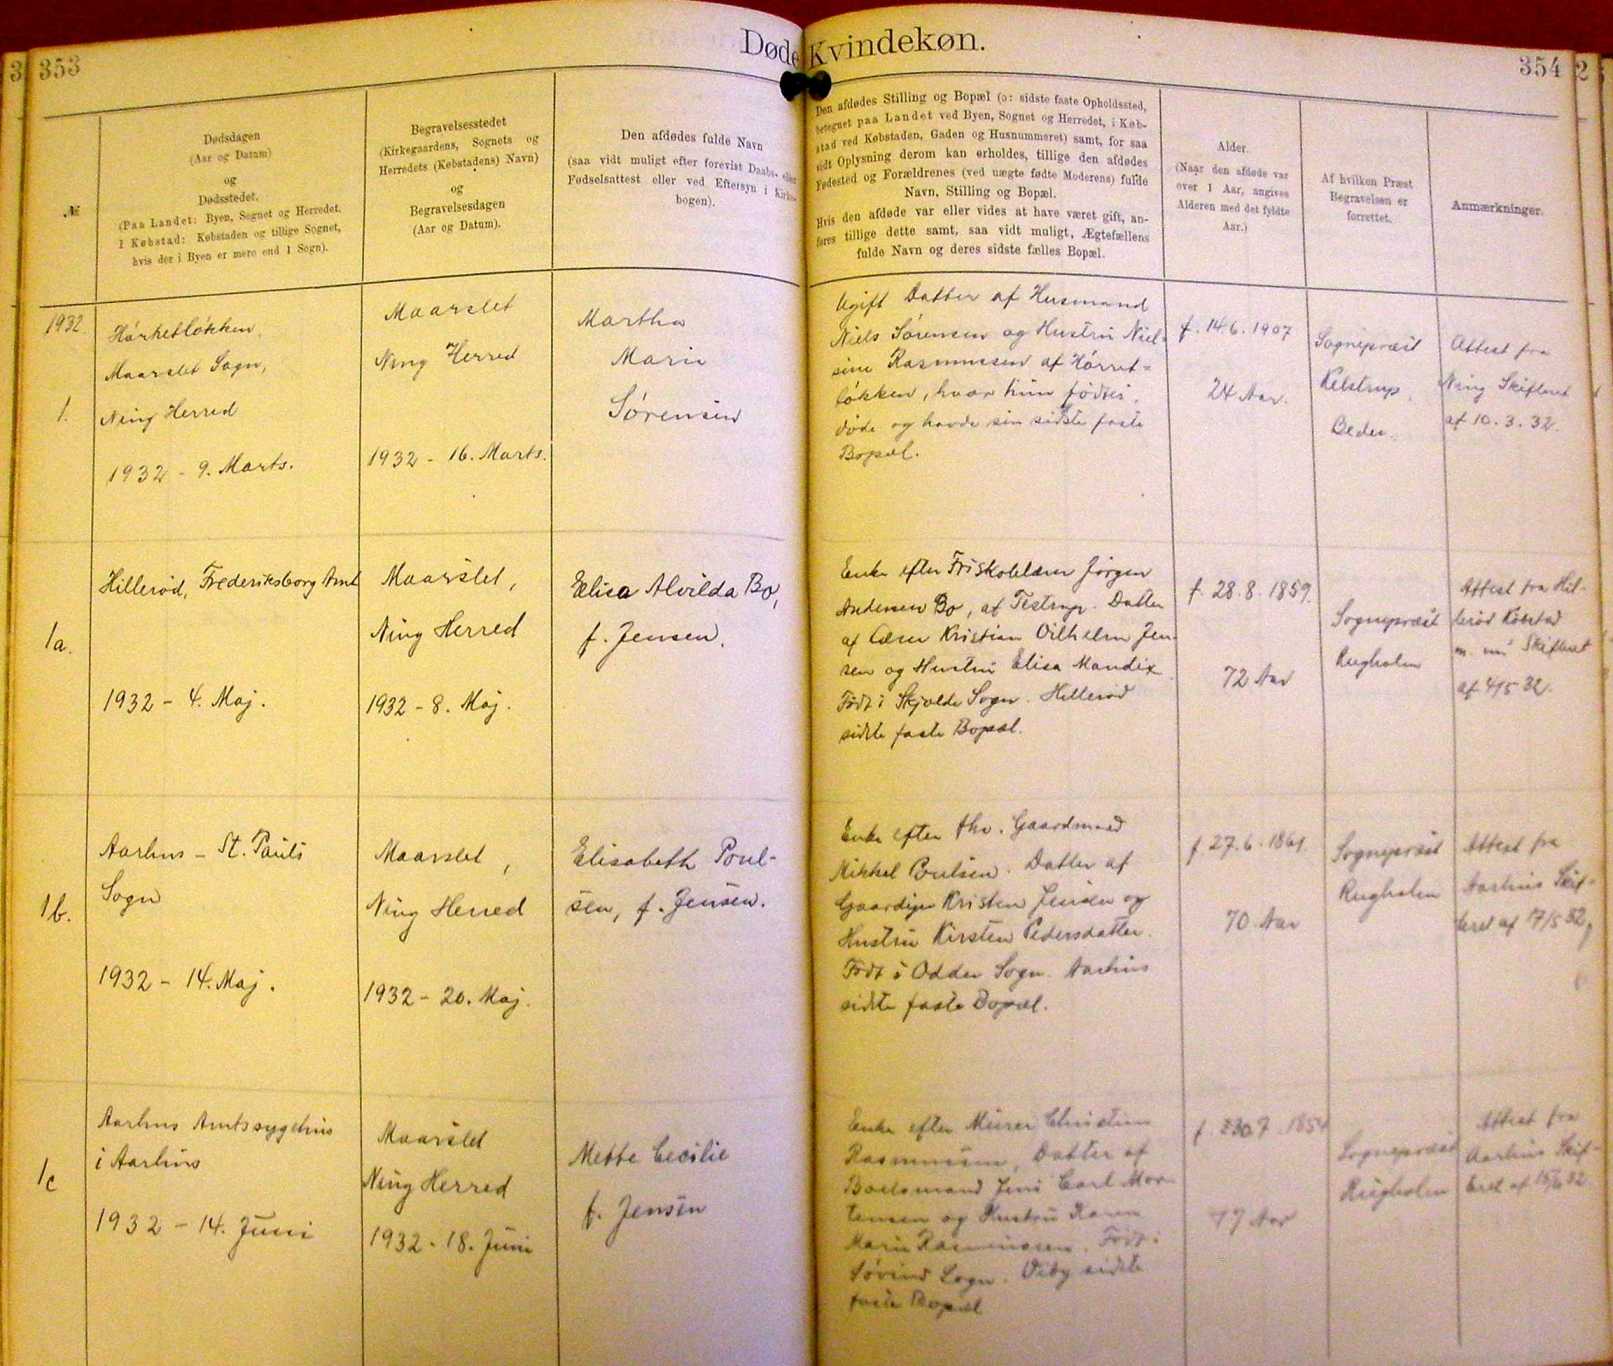 353
Døde Kvindekøn.
354
2
№
Dødsdagen
(Aar og Datum)
og
Dødsstedet.
(Paa Landet: Byen, Sognet og Herredet.
I Købstad: Købstaden og tillige Sognet,
hvis der i Byen er mere end 1 Sogn).
Begravelsesstedet
(Kirkegaardens, Sognets og
Herredets (Købstadens) Navn)
og
Begravelsesdagen
(Aar og Datum).
Den afdødes fulde Navn
(saa vidt muligt efter forevist Daabs- eller
Fødselsattest eller ved Eftersyn i Kirke-
bogen).
Den afdødes Stilling og Bopæl (ɔ: sidste faste Opholdssted,
betegnet paa Landet ved Byen, Sognet og Herredet, i Køb-
stad ved Købstaden, Gaden og Husnummeret) samt, for saa
vidt Oplysning derom kan erholdes, tillige den afdødes
Fødested og Forældrenes (ved uægte fødte Moderens) fulde
Navn, Stilling og Bopæl.
Hvis den afdøde var eller vides at have været gift, an-
føres tillige dette samt, saa vidt muligt, Ægtefællens
fulde Navn og deres sidste fælles Bopæl.
Alder.
(Naar den afdøde var
over 1 Aar, angives
Alderen med det fyldte
Aar.)
Af hvilken Præst
Begravelsen er
forrettet.
Anmærkninger.
1932.
1.
Hørretløkken,
Maarslet Sogn,
Ning Herred
1932 - 9. Marts.
Maarslet
Ning Herred
1932 - 16. Marts.
Martha
Marie
Sørensen
Ugift Datter af Husmand
Niels Sørensen og Hustru Niel-
sine Rasmussen af Hørret-
løkken, hvor hun fødtes,
døde og havde sin sidste faste
Bopæl.
f. 14.6.1907
24 Aar.
Sognepræst
Kelstrup,
Beder.
Attest fra
Ning Skifteret
af 10.3.32.
1a.
Hillerød, Frederiksborg Amt
1932 - 4. Maj.
Maarslet,
Ning Herred
1932 - 8. Maj.
Elisa Alvilda Bo,
f. Jensen.
Enke efter Friskolelærer Jørgen
Andersen Bo, af Testrup. Datter
af Lærer Kristian Vilhelm Jen-
sen og Hustru Elisa Mandix.
Født i Skjolde Sogn. Hillerød
sidste faste Bopæl.
f. 28.8.1859.
72 Aar
Sognepræst
Rugholm
Attest fra Hil-
lerød Købstad
m. m. Skifteret
af 4/5 32.
1b.
Aarhus - St. Pauls
Sogn
1932 - 14. Maj.
Maarslet,
Ning Herred
1932 - 20. Maj.
Elisabeth Poul-
sen, f. Jensen.
Enke efter fhv. Gaardmand
Mikkel Poulsen. Datter af
Gaardejer Kristen Jensen og
Hustru Kirsten Pedersdatter.
Født i Odder Sogn. Aarhus
sidste faste Bopæl.
f. 27.6.1861.
70 Aar
Sognepræst
Rugholm
Attest fra
Aarhus Skif-
teret af 17/5 32.
1c
Aarhus Amtssygehus
i Aarhus
1932 - 14. Juni
Maarslet
Ning Herred
1932 - 18. Juni
Mette Cecilie
f. Jensen
Enke efter Murer Christian
Rasmussen, Datter af
Boelsmand Jens Carl Mor-
tensen og Hustru Karen
Marie Rasmussen. Født i
Søvind Sogn. Viby sidste
faste Bopæl
f. 30.7.1854
77 Aar
Sognepræst
Rugholm
Attest fra
Aarhus Skif-
teret af 15/6 32.